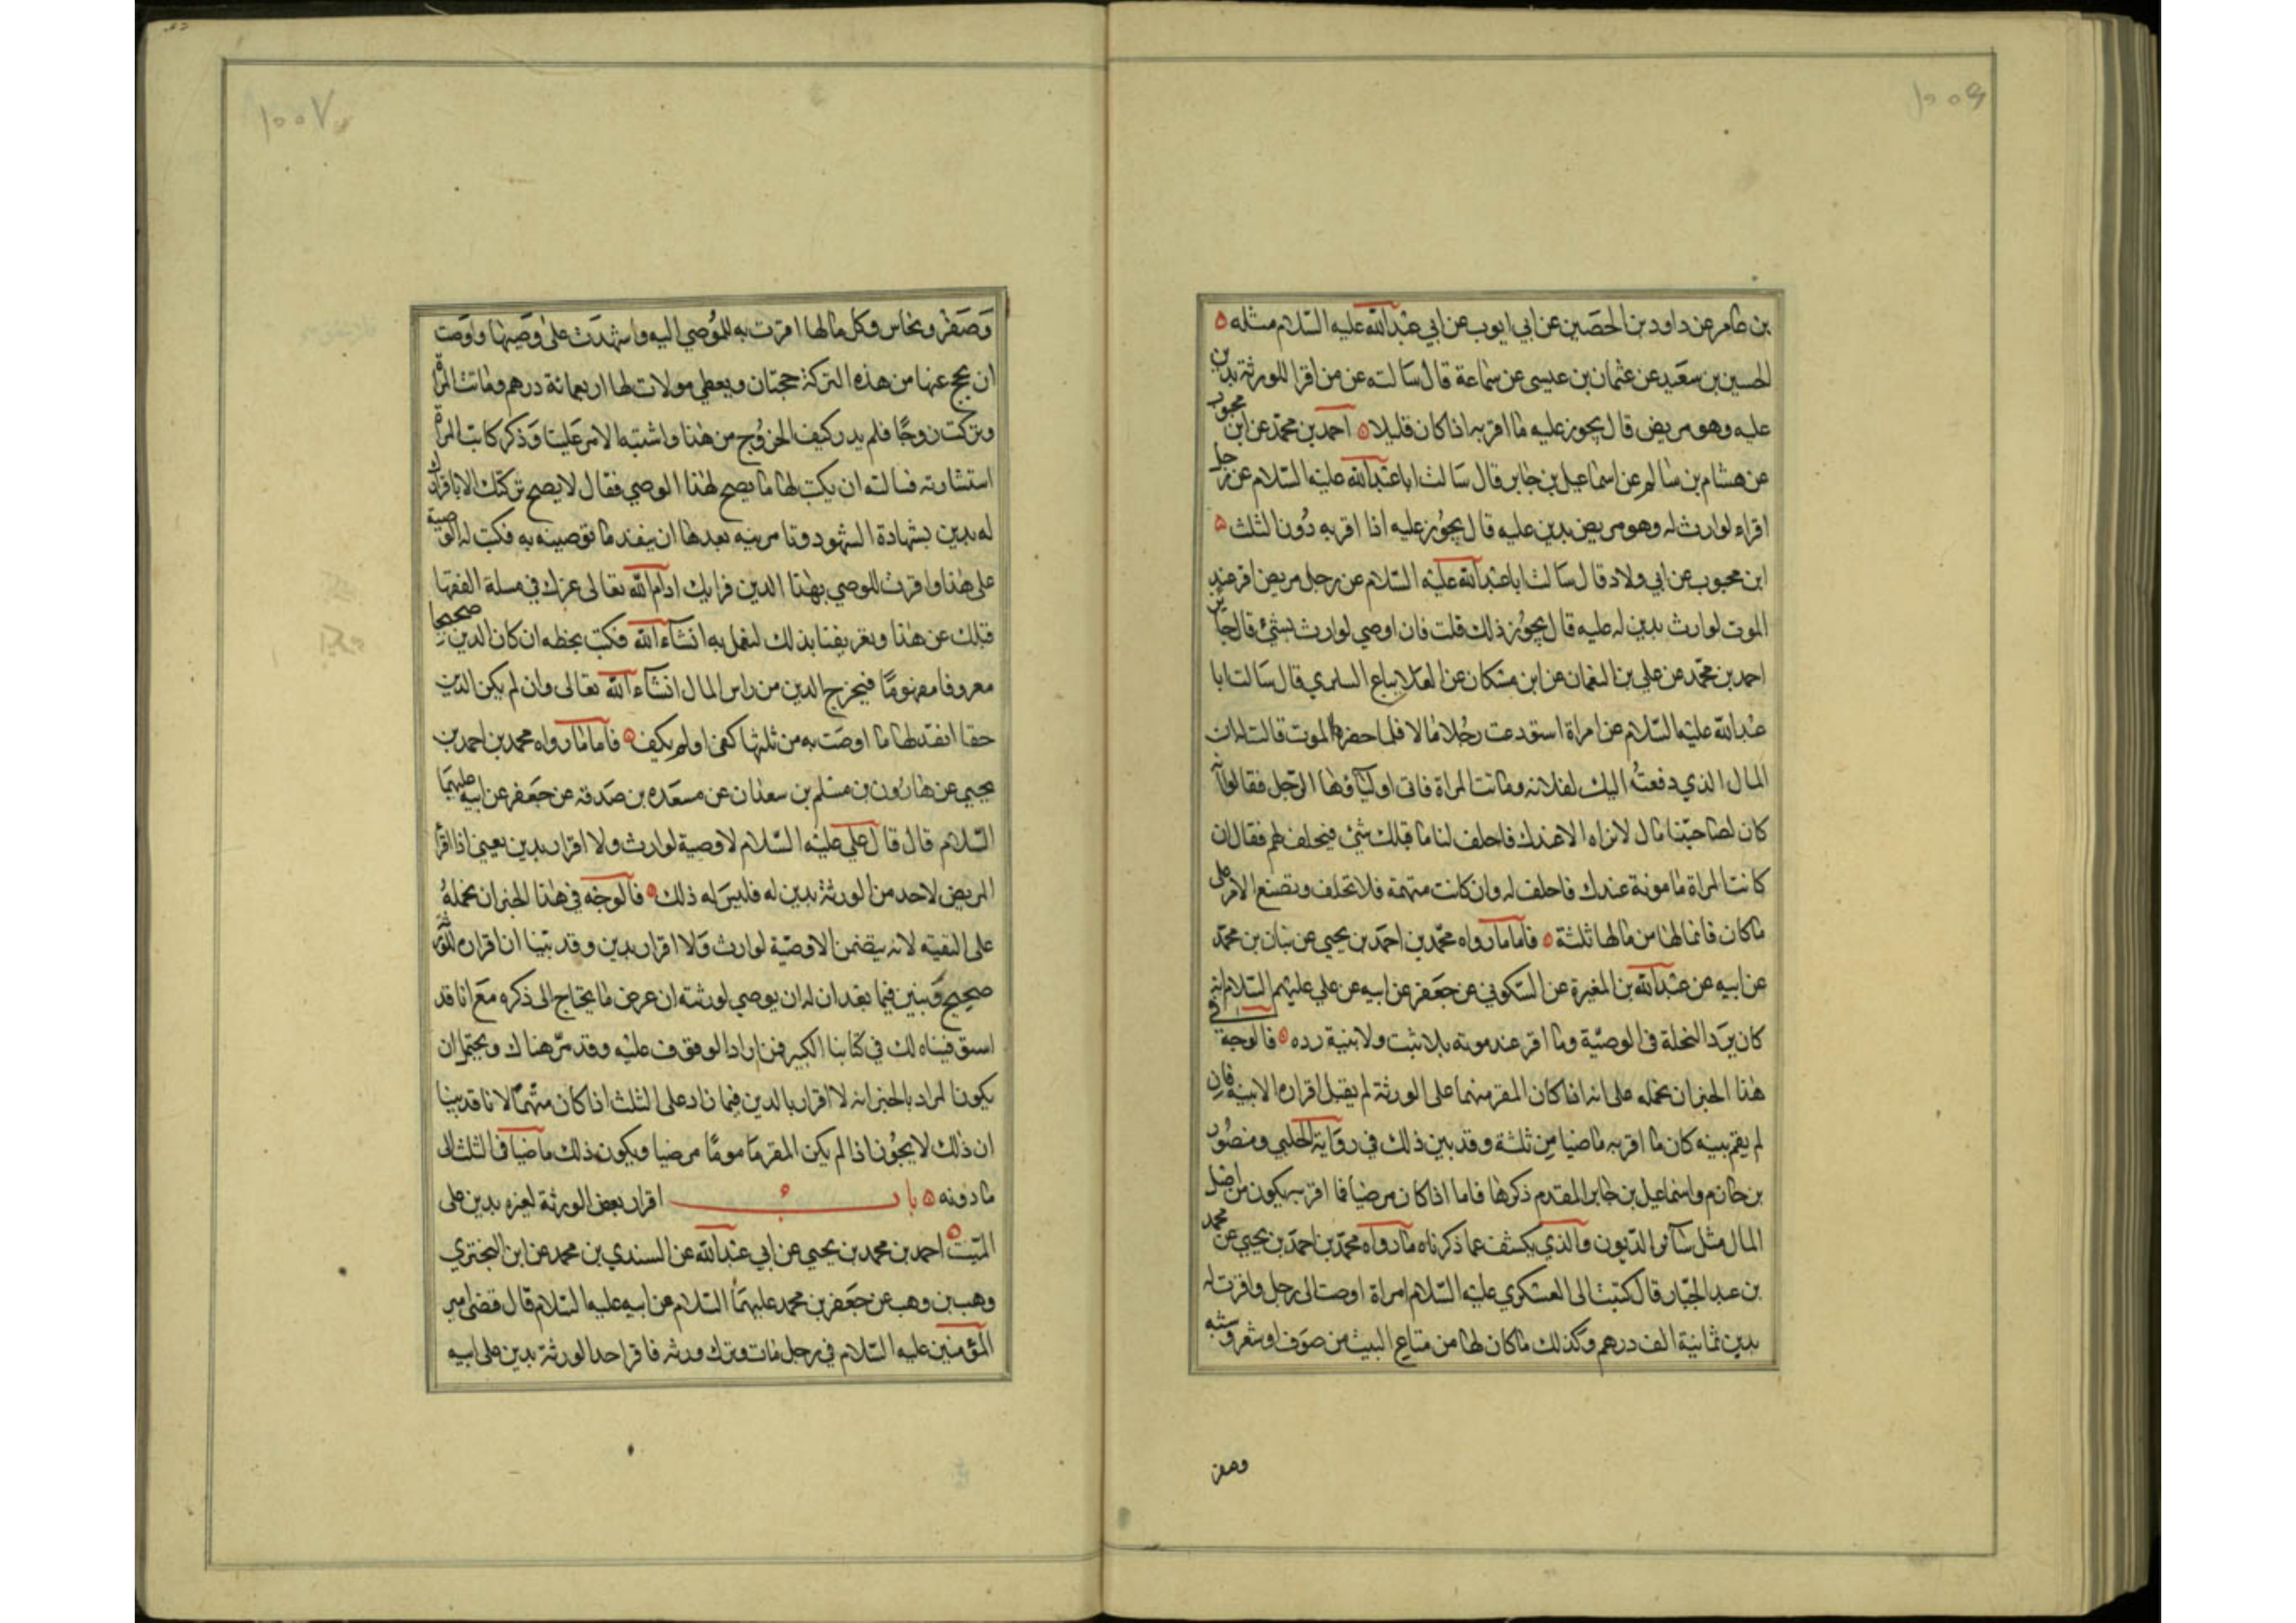 ۱۰۰۶
بن عامر عن داود بن الحصين عن ابي ايوب عن ابي عبدالله عليه السلام مثله ه
الحسين بن سعيد عن عثمان بن عيسى عن سماعة قال سالته عن من اقر للورثة بدين
عليه وهو مريض قال يجوز عليه ما اقر به اذا كان قليلا ه احمد بن محمد عن ابن محبوب
عن هشام بن سالم عن اسماعيل بن جابر قال سالت ابا عبدالله عليه السلام عن رجل
اقراء لوارث له وهو مريض بدين عليه قال يجوز عليه اذا اقر به دون الثلث ه
ابن محبوب عن ابي ولاد قال سالت ابا عبدالله عليه السلام عن رجل مريض اقر عند
الموت لوارث بدين له عليه قال يجوز ذلك قلت فان اوصي لوارث بشئ قال جايز
احمد بن محمد عن علي بن النعمان عن ابن مسكان عن العلا بياع السابري قال سالت ابا
عبدالله عليه السلام عن امراة استودعت رجلا مالا فلما حضرها الموت قالت له ان
المال الذي دفعت اليك لفلانه وماتت المراة فاتى اولياؤها الرجل فقالوا انه
كان لصاحبتنا مال لا نراه الا عندك فاحلف لنا ما قبلك شئ فيحلف لهم فقال ان
كانت المراة مامونة عندك فاحلف له وان كانت متهمة فلا تحلف وتصنع الامر على
ماكان فانما لها من مالها ثلثة ه فاما ما رواه محمد بن احمد بن يحيى عن بنان بن محمد
عن ابيه عن عبدالله بن المغيرة عن السكوني عن جعفر عن ابيه عن علي عليهم السلام انه
كان يرد النحلة في الوصية وما اقر عند موته بلا ثبت ولا بنية رده ه فالوجه في
هذا الخبر ان نحمله على انه اذا كان المقر متهما على الورثة لم يقبل اقراره الا ببينة فان
لم يقم بينه كان ما اقر به ماضيا من ثلثة وقد بين ذلك في رواية الحلبي ومنصور
بن حازم واسماعيل بن جابر المقدم ذكرها فاما اذا كان مرضيا فما اقر به يكون من اصل
المال مثل سآئر الديون والذي يكشف عما ذكرناه ما رواه محمد بن احمد بن يحيى عن محمد
بن عبد الجبار قال كتبت الى العسكري عليه السلام امراة اوصت الى رجل واقرت له
بدين ثمانية الف درهم وكذلك ماكان لها من متاع البيت من صوف وشعر وشبه
وصفر
۱۰۰۷
وصفر ونحاس وكل مالها اقرت به للموصي اليه واشهدت على وصيتها واوصت
ان يحج عنها من هذه التركة حجتان ويعطي مولات لها اربعمائة درهم وماتت المراة
وتركت زوجا فلم يدر كيف الخروج من هذا واشتبه الامر علينا وذكر كاتب المراة
استشارته فسالته ان يكتب لها ما يصح لهذا الوصي فقال لا يصح تركتك الا باقرارك
له بدين بشهادة الشهود وتامرينه بعدها ان ينفذ ما توصينه به فكتب له الوصية
على هذا واقرت للوصي بهذا الدين فرايك ادام الله تعالى عزك في مسلة الفقها
قبلك عن هذا وتعريفنا بذلك لنعمل به انشاء الله فكتب بخطه ان كان الدين صحيحا
معروفا مفهوما فيخرج الدين من راس المال انشاء الله تعالى وان لم يكن الدين
حقا انفذ لها ما اوصت به من ثلثها كفى او لم يكف ه فاما ما رواه محمد بن احمد بن
يحيى عن هارون بن مسلم بن سعدان عن مسعده بن صدقه عن جعفر عن ابيه عليهما
السلام قال قال علي عليه السلام لا وصية لوارث ولا اقرار بدين يعني اذا اقر
المريض لاحد من الورثة بدين له فليس له ذلك ه فالوجه في هذا الخبر ان نحمله
على التقيه لانه يتضمن الا وصية لوارث ولا اقرار بدين وقد بينا ان اقراره للورثة
صحيح وبنين فيما بعد ان له ان يوصي لورثته ان عرض ما يحتاج الى ذكره مع انا قد
استوفيناه لك في كتابنا الكبير فمن اراد الوقوف عليه وقد مر هناك ويحتمل ان
يكون المراد بالخبر انه لا اقرار بالدين فيما زاد على الثلث اذا كان متهما لانا قد بينا
ان ذلك لا يجوز اذا لم يكن المقر مامونا مرضيا ويكون ذلك ماضيا في الثلث الى
ما دونه ه باب اقرار بعض الورثة لغيره بدين على
الميت ه احمد بن محمد بن يحيى عن ابي عبدالله عن السندي بن محمد عن ابن البختري
وهب بن وهب عن جعفر بن محمد عليهما السلام عن ابيه عليه السلام قال قضى امير
المؤمنين عليه السلام في رجل مات وترك ورثه فاقر احد الورثة بدين على ابيه